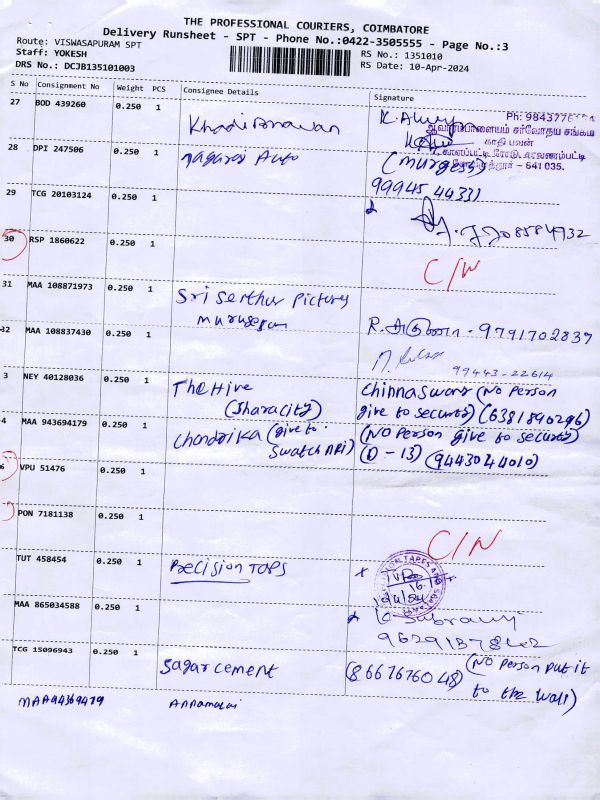 THE PROFESSIONAL COURIERS, COIMBATORE
Delivery Runsheet - SPT - Phone No.:0422-3505555 - Page No.:3
Route: VISWASAPURAM SPT
Staff: YOKESH
DRS No.: DCJB135101003
RS No.: 1351010
RS Date: 10-Apr-2024
S No Consignment No Weight PCS Consignee Details Signature
27 BOD 439260 0.250 1 Khadi Bhawan
28 DPI 247506 0.250 1 nagaraj Auto (murgesh)
99945 44331
29 TCG 20103124 0.250 1
30 RSP 1860622 0.250 1 C/N
31 MAA 108871973 0.250 1 Sri Senthur Pictures
murugesan R. அருணா - 9791702837
32 MAA 108837430 0.250 1
99443-22614
3 NEY 40128036 0.250 1 The Hive chinnaswamy (No person
(Jharacity) give to security) (6381840296)
4 MAA 943694179 0.250 1 Chandrika (give to (No person give to security)
Swatch APi) (D - 13) (9443044010)
6 VPU 51476 0.250 1
PON 7181138 0.250 1 C/N
TUT 458454 0.250 1 Precision TAPS
MAA 865034588 0.250 1
TCG 15096943 0.250 1 Sagar cement (8667676048) (No person put it
to the wall)
MAA94369479 Annamalai
காதி பவன்
- 641 035.